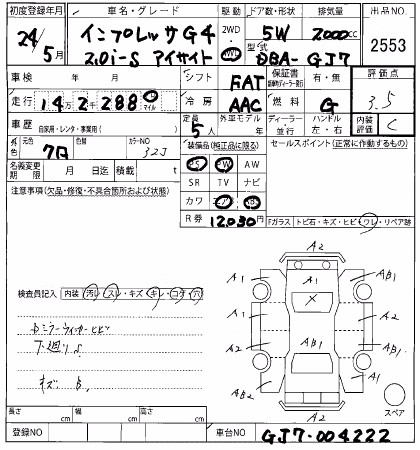 初度登録年月 車名・グレード 駆動 ドア数・形状 排気量 出品NO
24年 5月 インプレッサG4 2WD 5W 2000cc 2553
2.0i-S アイサイト 4WD 型式 DBA-GJ7
車検 年 月 シフト FAT 保証書 有・無 評価点
走行 14万2千288 km マイル 冷房 AAC 燃料 G 3.5
車歴 自家用・レンタ・事業用( ) 定員 5人 外車モデル年 ディーラー・並行 ハンドル 左・右 内装評価 C
外色 元色 クロ 色替 カラーNO 32J 装備品(純正品に限る) セールスポイント(正常に作動するもの)
名義変更期限 月 日迄 積載 t PS PW AW
注意事項(欠品・修復・不具合箇所および状態) SR TV ナビ
カワ エアB ABS
R券 12,030円 Fガラス トビ石・キズ・ヒビ・ワレ・リペア跡
A2
A1 A1 AB1
X
検査員記入 内装 汚レ・スレ・キズ・キレ・コゲ・穴
A1 A2
Dミラーウィンカーヒビ
下廻りS
A2 AB1 AB1
キズ B
AB2 A1
A2 スペア
長さ cm 幅 cm 高さ cm
登録NO 車台NO GJ7-004222